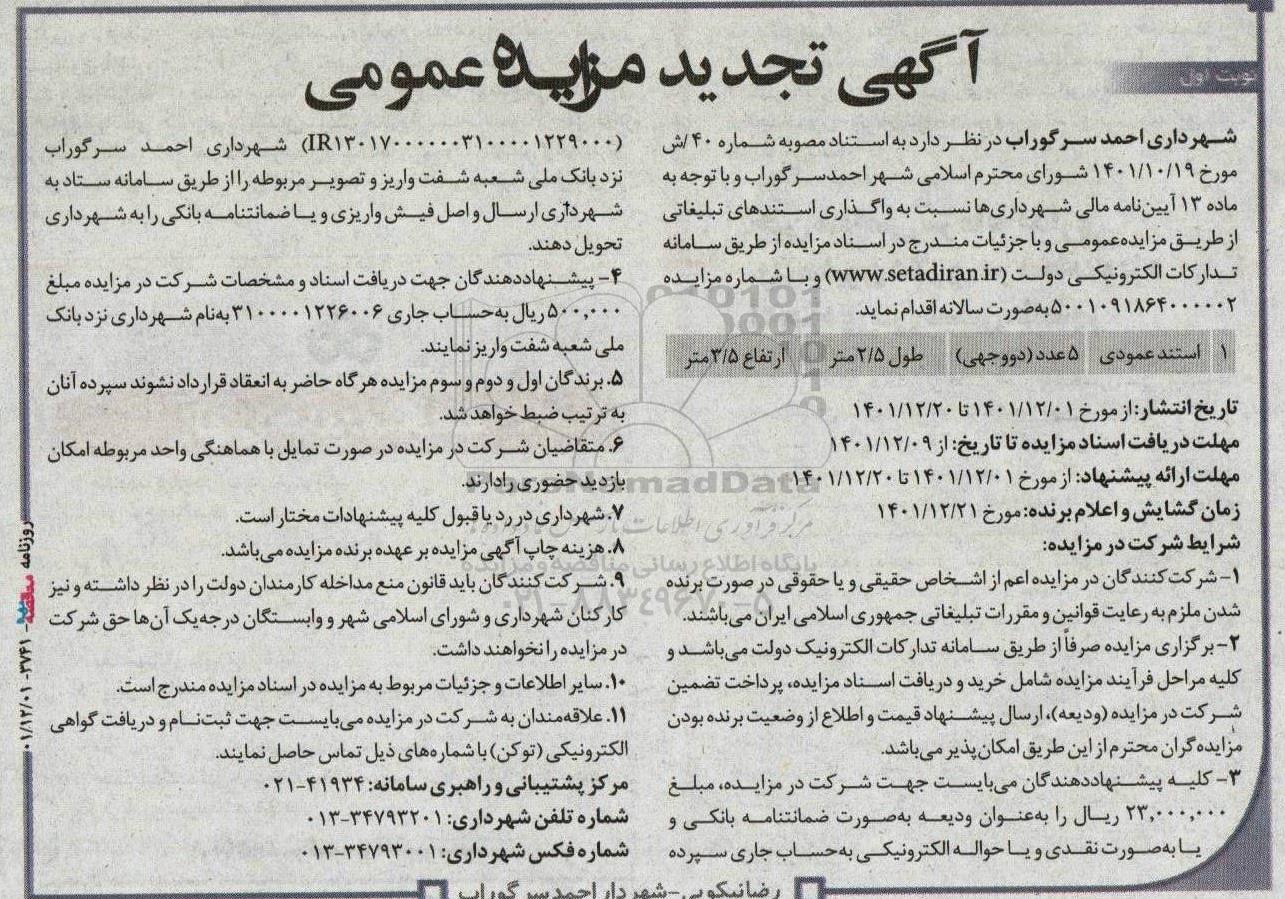 آگهی تجدید مزایده عمومی
نوبت اول
شهرداری احمد سرگوراب در نظر دارد به استناد مصوبه شماره ۴۰/ش
مورخ ۱۴۰۱/۱۰/۱۹ شورای محترم اسلامی شهر احمدسرگوراب و با توجه به
ماده ۱۳ آیین‌نامه مالی شهرداری‌ها نسبت به واگذاری استندهای تبلیغاتی
از طریق مزایده‌عمومی و با جزئیات مندرج در اسناد مزایده از طریق سامانه
تدارکات الکترونیکی دولت (www.setadiran.ir) و با شماره مزایده
۵۰۰۱۰۹۱۸۶۴۰۰۰۰۰۲ به‌صورت سالانه اقدام نماید.
۱ استند عمودی ۵عدد(دووجهی) طول ۲/۵متر ارتفاع ۳/۵متر
تاریخ انتشار: از مورخ ۱۴۰۱/۱۲/۰۱ تا ۱۴۰۱/۱۲/۲۰
مهلت دریافت اسناد مزایده تا تاریخ: از ۱۴۰۱/۱۲/۰۹
مهلت ارائه پیشنهاد: از مورخ ۱۴۰۱/۱۲/۰۱ تا ۱۴۰۱/۱۲/۲۰
زمان گشایش و اعلام برنده: مورخ ۱۴۰۱/۱۲/۲۱
شرایط شرکت در مزایده:
۱- شرکت‌کنندگان در مزایده اعم از اشخاص حقیقی و یا حقوقی در صورت برنده
شدن ملزم به رعایت قوانین و مقررات تبلیغاتی جمهوری اسلامی ایران می‌باشند.
۲- برگزاری مزایده صرفاً از طریق سامانه تدارکات الکترونیک دولت می‌باشد و
کلیه مراحل فرآیند مزایده شامل خرید و دریافت اسناد مزایده، پرداخت تضمین
شرکت در مزایده (ودیعه)، ارسال پیشنهاد قیمت و اطلاع از وضعیت برنده بودن
مزایده‌گران محترم از این طریق امکان‌پذیر می‌باشد.
۳- کلیه پیشنهاددهندگان می‌بایست جهت شرکت در مزایده، مبلغ
۲۳,۰۰۰,۰۰۰ ریال را به‌عنوان ودیعه به‌صورت ضمانتنامه بانکی و
یا به‌صورت نقدی و یا حواله الکترونیکی به‌حساب جاری سپرده
(IR۱۳۰۱۷۰۰۰۰۰۰۰۳۱۰۰۰۰۱۲۲۹۰۰۰) شهرداری احمد سرگوراب
نزد بانک ملی شعبه شفت واریز و تصویر مربوطه را از طریق سامانه ستاد به
شهرداری ارسال و اصل فیش واریزی و یا ضمانتنامه بانکی را به شهرداری
تحویل دهند.
۴- پیشنهاددهندگان جهت دریافت اسناد و مشخصات شرکت در مزایده مبلغ
۵۰۰,۰۰۰ ریال به‌حساب جاری ۳۱۰۰۰۰۱۲۲۶۰۰۶ به‌نام شهرداری نزد بانک
ملی شعبه شفت واریز نمایند.
۵. برندگان اول و دوم و سوم مزایده هرگاه حاضر به انعقاد قرارداد نشوند سپرده آنان
به ترتیب ضبط خواهد شد.
۶. متقاضیان شرکت در مزایده در صورت تمایل با هماهنگی واحد مربوطه امکان
بازدید حضوری را دارند.
۷. شهرداری در رد یا قبول کلیه پیشنهادات مختار است.
۸. هزینه چاپ آگهی مزایده بر عهده برنده مزایده می‌باشد.
۹. شرکت‌کنندگان باید قانون منع مداخله کارمندان دولت را در نظر داشته و نیز
کارکنان شهرداری و شورای اسلامی شهر و وابستگان درجه‌یک آن‌ها حق شرکت
در مزایده را نخواهند داشت.
۱۰. سایر اطلاعات و جزئیات مربوط به مزایده در اسناد مزایده مندرج است.
۱۱. علاقه‌مندان به شرکت در مزایده می‌بایست جهت ثبت‌نام و دریافت گواهی
الکترونیکی (توکن) با شماره‌های ذیل تماس حاصل نمایند.
مرکز پشتیبانی و راهبری سامانه: ۴۱۹۳۴-۰۲۱
شماره تلفن شهرداری: ۳۴۷۹۳۲۰۱-۰۱۳
شماره فکس شهرداری: ۳۴۷۹۳۰۰۱-۰۱۳
رضا نیکویی-شهردار احمدسرگوراب
روزنامه مناقصه - ۳۷۴۱ - ۰۱/۱۲/۰۱
ParsNamadData
پایگاه اطلاع رسانی مناقصه و مزایده
۰۲۱-۸۸۳۴۹۶۷۰-۵